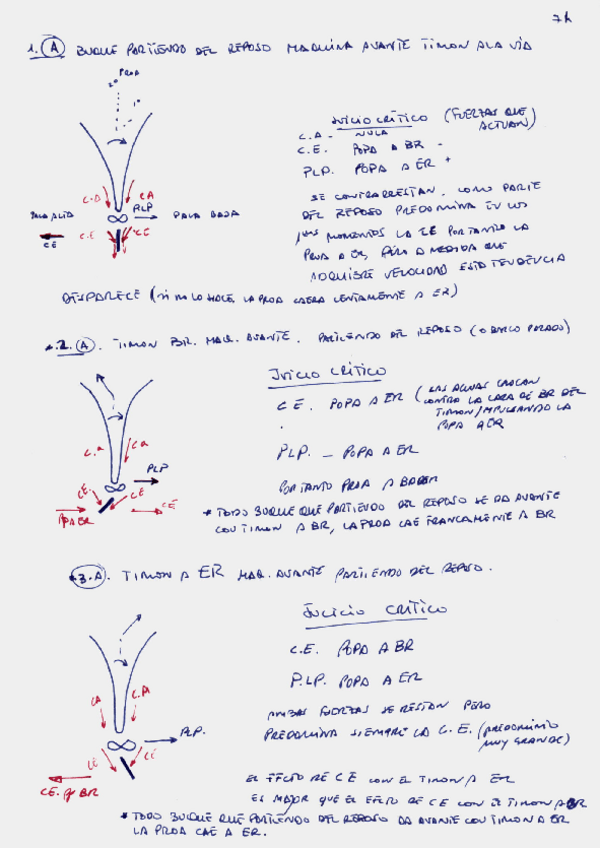 7A
1. (A) BUQUE PARTIENDO DEL REPOSO MAQUINA AVANTE TIMON A LA VIA
PROA
2º
1º
JUICIO CRÍTICO (FUERZAS QUE ACTUAN)
C.A - NULA
C.E. POPA A BR -
PLP. POPA A ER +
C.A
CA
PLP
PALA ALTA
PALA BAJA
CE
C.E
CE
SE CONTRARRESTAN. COMO PARTE
DEL REPOSO PREDOMINA EN LOS
MOMENTOS LA CE PORTANTO LA
PROA A ER, PERO A MEDIDA QUE
ADQUIERE VELOCIDAD ESTA TENDENCIA
DESPARECE (SI NO LO HACE, LA PROA CAERA LENTAMENTE A ER)
2. (A). TIMON BR. MAQ. AVANTE. PARTIENDO DEL REPOSO (O BARCO PARADO)
JUICIO CRÍTICO
C.E. POPA A ER (LAS AGUAS CHOCAN
CONTRA LA CARA DE BR DEL
TIMON/IMPULSANDO LA
POPA A ER
C.A
CA
PLP
PLP. - POPA A ER
CE.
CE
CE
POR TANTO PROA A BABOR
* TODO BUQUE QUE PARTIENDO DEL REPOSO SE DA AVANTE
CON TIMON A BR, LA PROA CAE FRANCAMENTE A BR
3. A). TIMON A ER MAQ. AVANTE PARTIENDO DEL REPOSO.
JUICIO CRÍTICO
C.E. POPA A BR
P.L.P. POPA A ER
CA
C.A
AMBAS FUERZAS SE RESTAN PERO
PREDOMINA SIEMPRE LA C.E. (PREDOMINIO
MUY GRANDE)
PLP.
CE
CE
CE. BR
EL EFECTO DE CE CON EL TIMON A ER
ES MAJOR QUE EL EFECTO DE CE CON EL TIMON A BR
* TODO BUQUE QUE PARTIENDO DEL REPOSO DA AVANTE CON TIMON A ER
LA PROA CAE A ER.